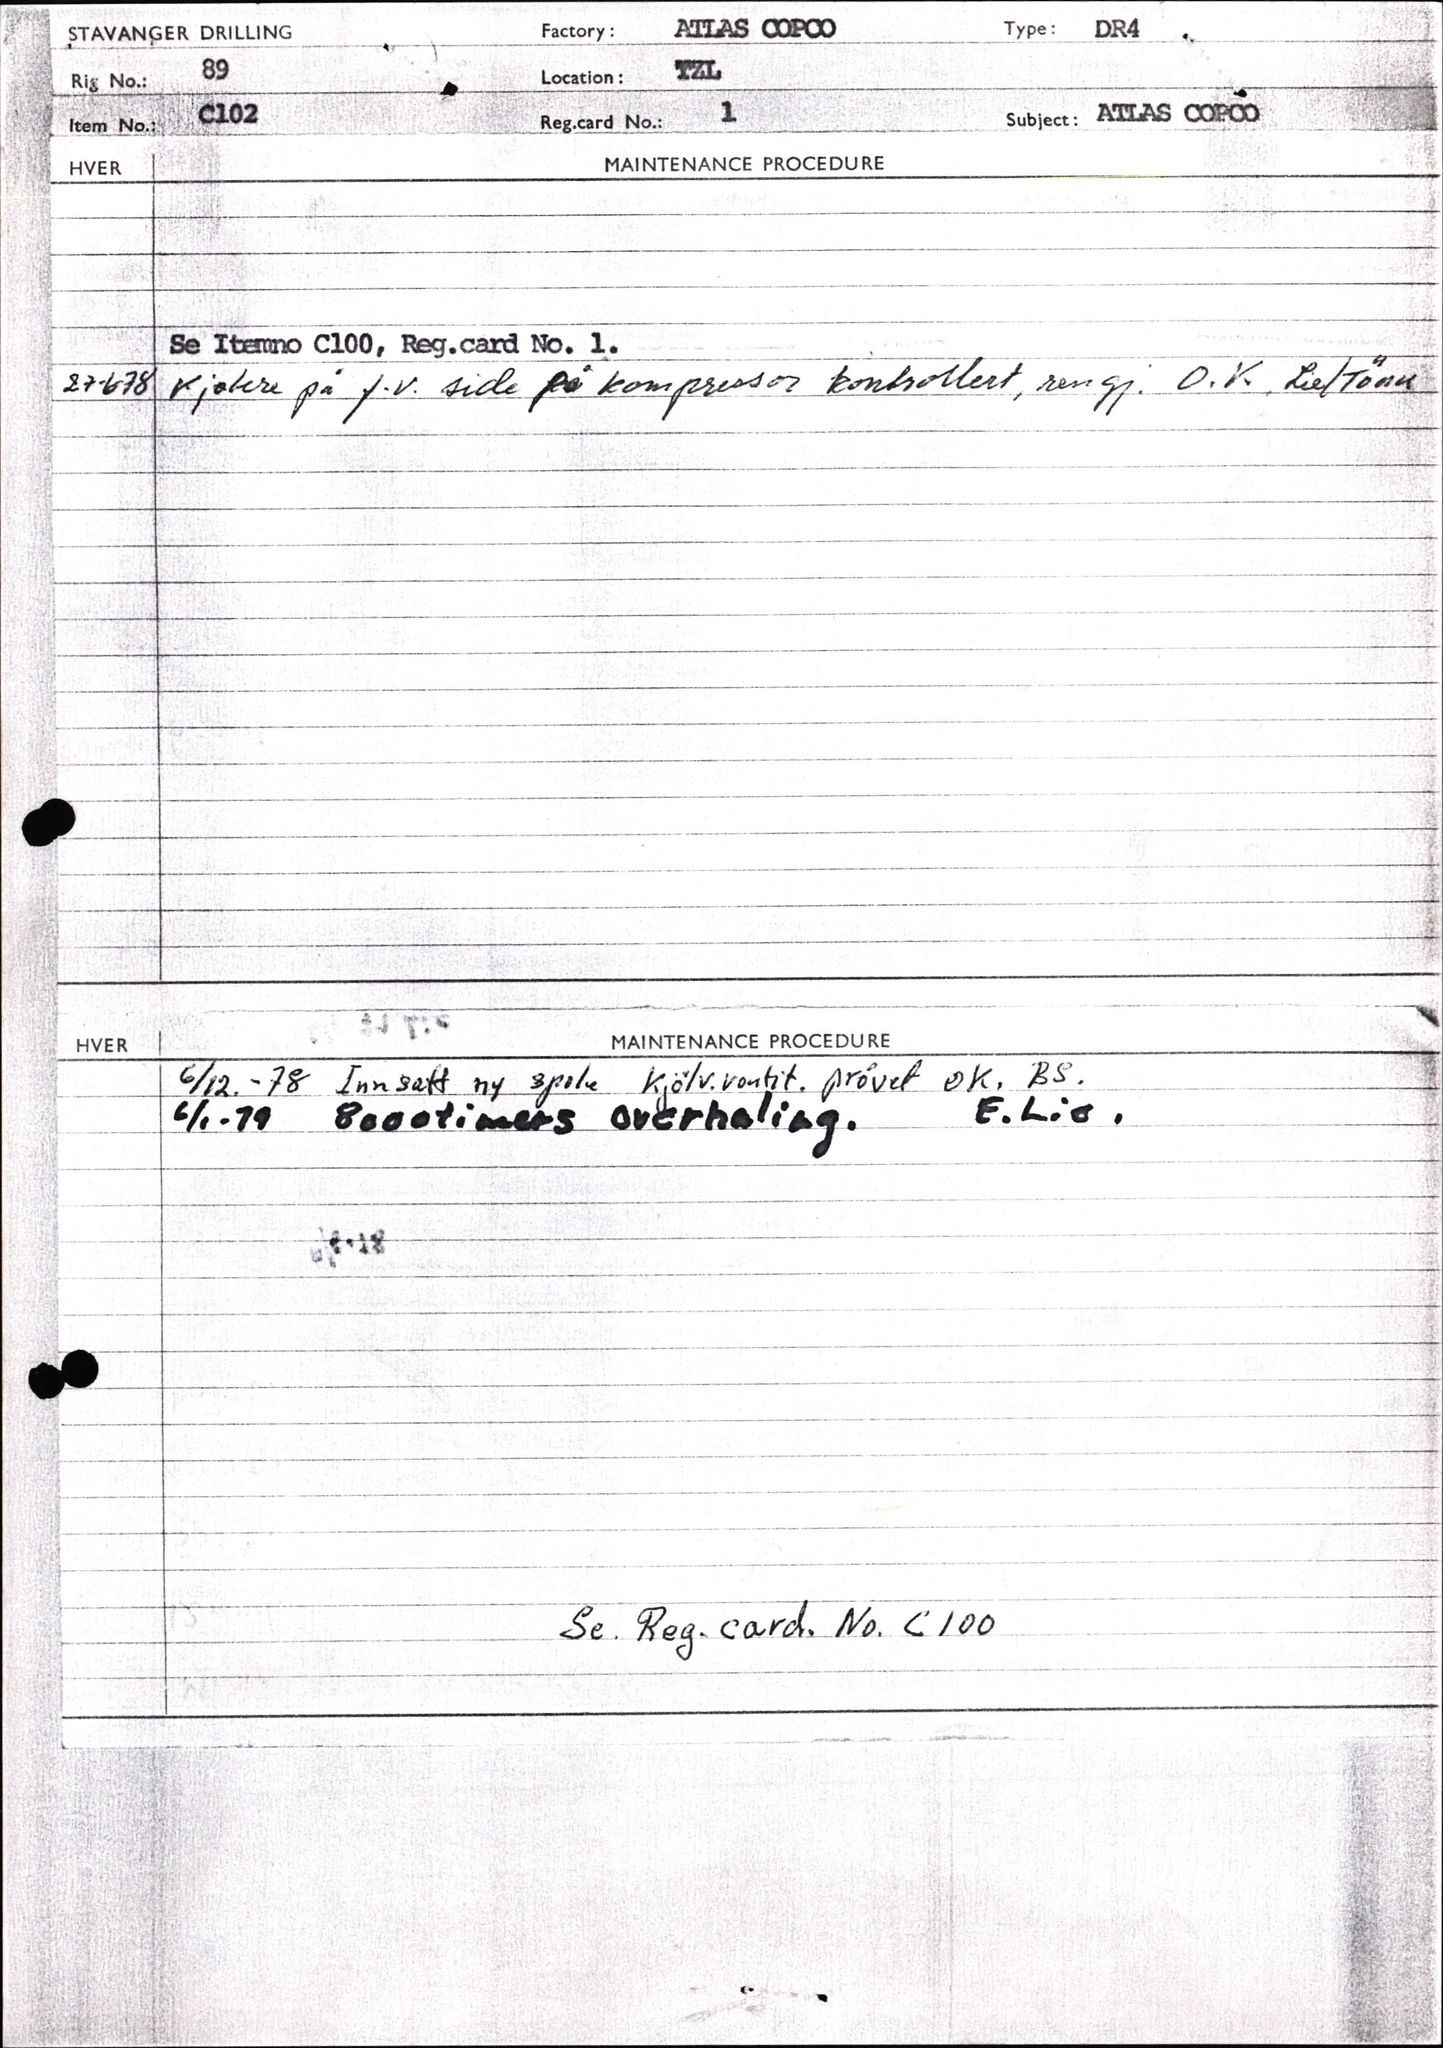 STAVANGER DRILLING Factory: ATLAS COPCO Type: DR4
Rig No.: 89 Location: TZL
Item No.: C102 Reg.card No.: 1 Subject: ATLAS COPCO
HVER MAINTENANCE PROCEDURE
Se Itemno C100, Reg.card No. 1.
27-6-78 Kjølere på f.v. side på kompressor kontrollert, rengj. O.K. Lie/
HVER MAINTENANCE PROCEDURE
6/12.-78 Innsatt ny spole kjölv.ventil. prövet OK. BS.
6/1-79 8000timers overhaling. E.Lie.
Se. Reg. card. No. C100